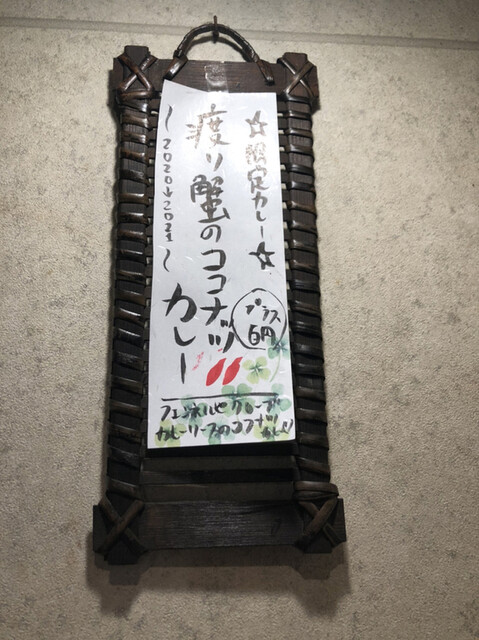 ☆限定カレー☆
渡り蟹のココナツ
カレー
〜2020→2021〜
プラス
6円
フェンネルやクローブ
カレーリーフのココナツカレー